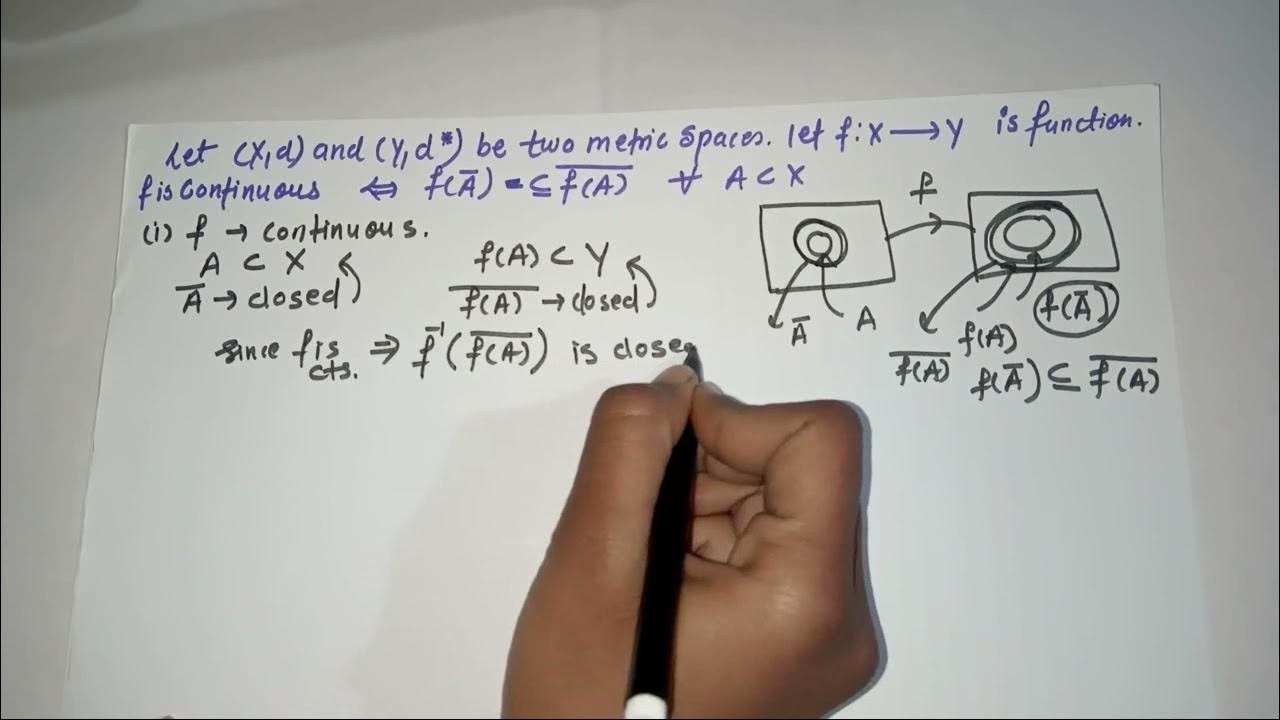 Let (X,d) and (Y,d*) be two metric spaces. Let f: X → Y is function.
f is continuous ⇔ f(A̅) ⊆ \overline{f(A)} ∀ A ⊂ X
(i) f → continuous.
A ⊂ X f(A) ⊂ Y
A̅ → closed \overline{f(A)} → closed
since f is cts. ⇒ f⁻¹(\overline{f(A)}) is close
f
A̅ A
f(A) f(A̅)
\overline{f(A)}
f(A̅) ⊆ \overline{f(A)}